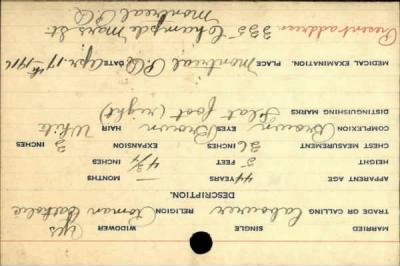 MARRIED Yes SINGLE WIDOWER
TRADE OR CALLING Labourer RELIGION Roman Catholic
DESCRIPTION.
APPARENT AGE 44 YEARS — MONTHS
HEIGHT 5 FEET 4 3/4 INCHES
CHEST MEASUREMENT 36 INCHES EXPANSION 3 INCHES
COMPLEXION Brown EYES Brown HAIR White
DISTINGUISHING MARKS Flat foot (right)
MEDICAL EXAMINATION. PLACE Montreal P.Q. DATE Apr. 17th 1916
Present address 335 Champ de Mars St.
Montreal P.Q.